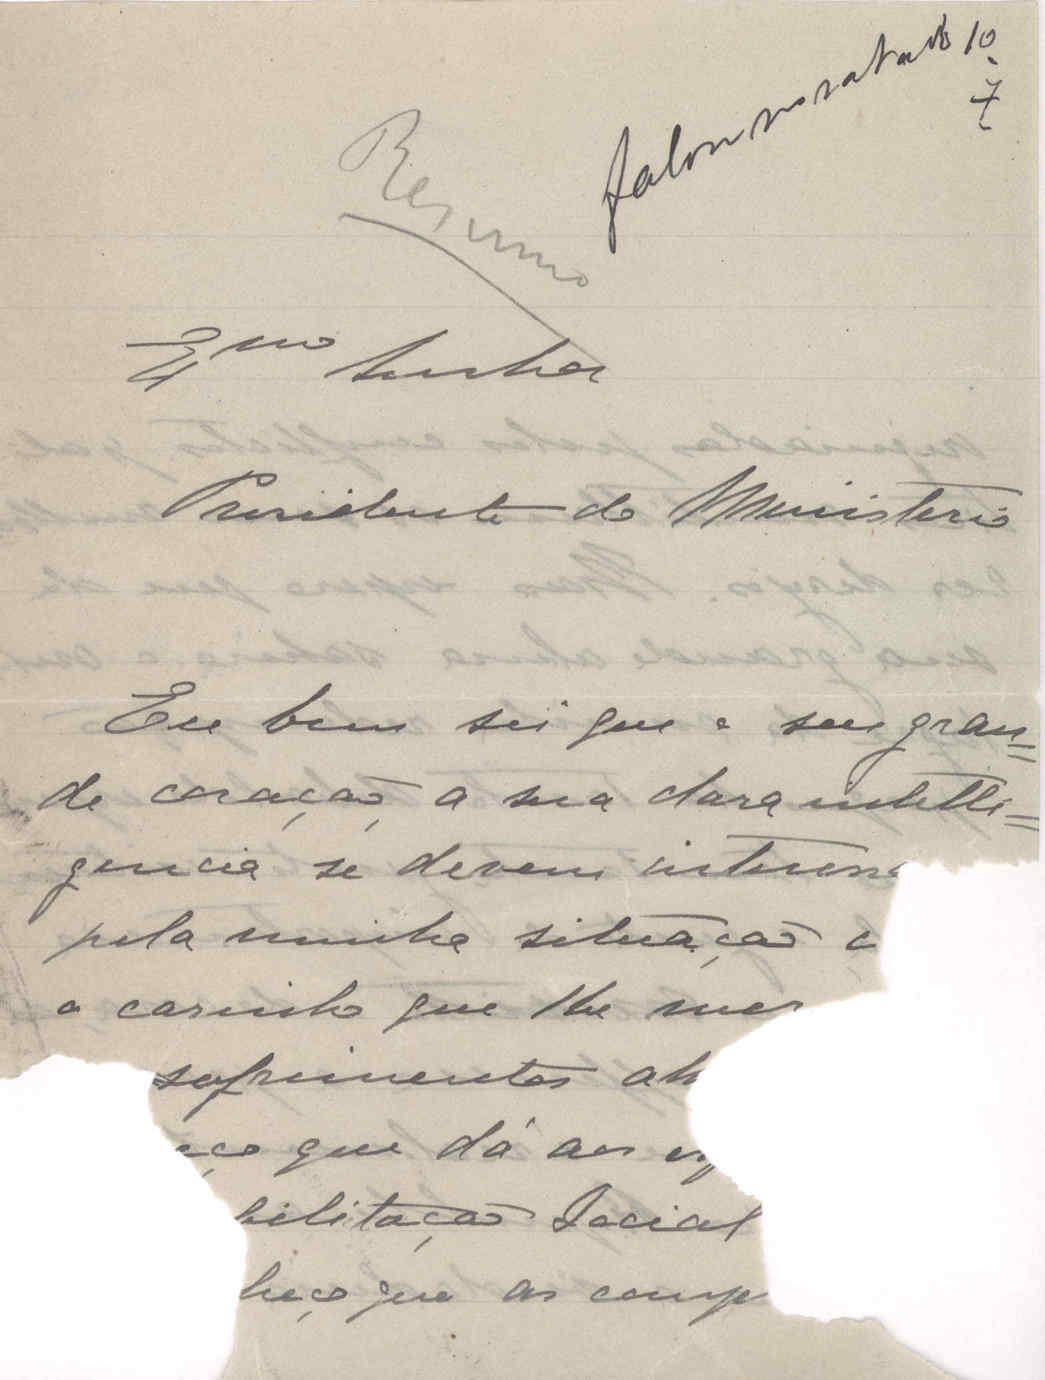 10
7
Resumo
Exmo Senhor
Presidente do Ministerio
Eu bem sei que o seu gran=
de coração, a sua clara intelli=
gencia se devem interess
pela minha situação e
o carinho que lhe mer
sofrimentos alh
eço que dá aos es
bilitação Social
heço que as comp